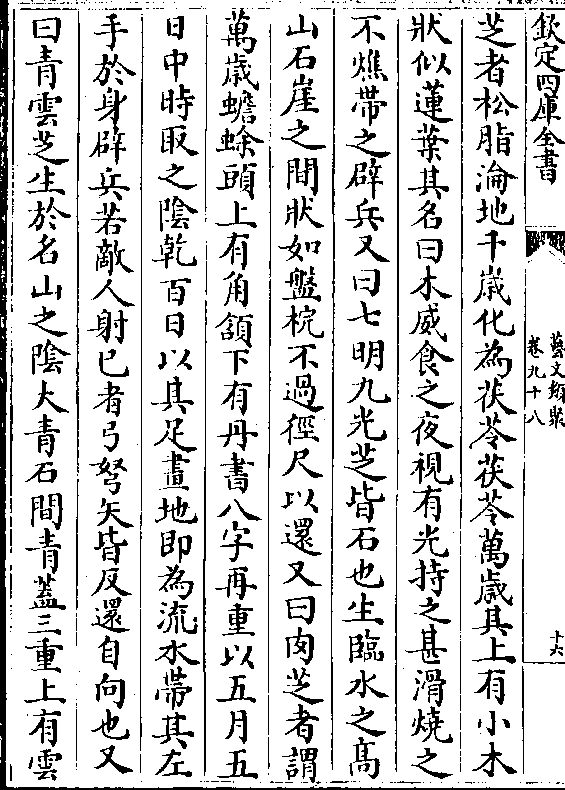 欽定四庫全書
藝文類聚
卷九十八
十六
芝者松脂淪地千歲化為茯苓茯苓萬歲其上有小木
狀似蓮葉其名曰木威食之夜視有光持之甚滑燒之
不燋帶之辟兵又曰七明九光芝皆石也生臨水之髙
山石崖之間狀如盤椀不過徑尺以還又曰肉芝者謂
萬歲蟾蜍頭上有角頷下有丹書八字再重以五月五
日中時取之陰乾百日以其足畫地即為流水帶其左
手於身辟兵若敵人射已者弓弩矢皆反還自向也又
曰青雲芝生於名山之陰大青石間青蓋三重上有雲